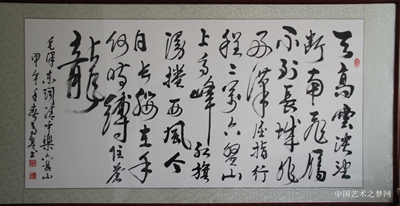 天高雲淡望
断南飛雁
不到長城非
好漢屈指行
程二萬六盤山
上高峰紅旗
漫捲西風今
日長纓在手
何時縛住蒼
龍
毛澤東詞清平樂六盘山
甲午年書
中国艺术之梦网